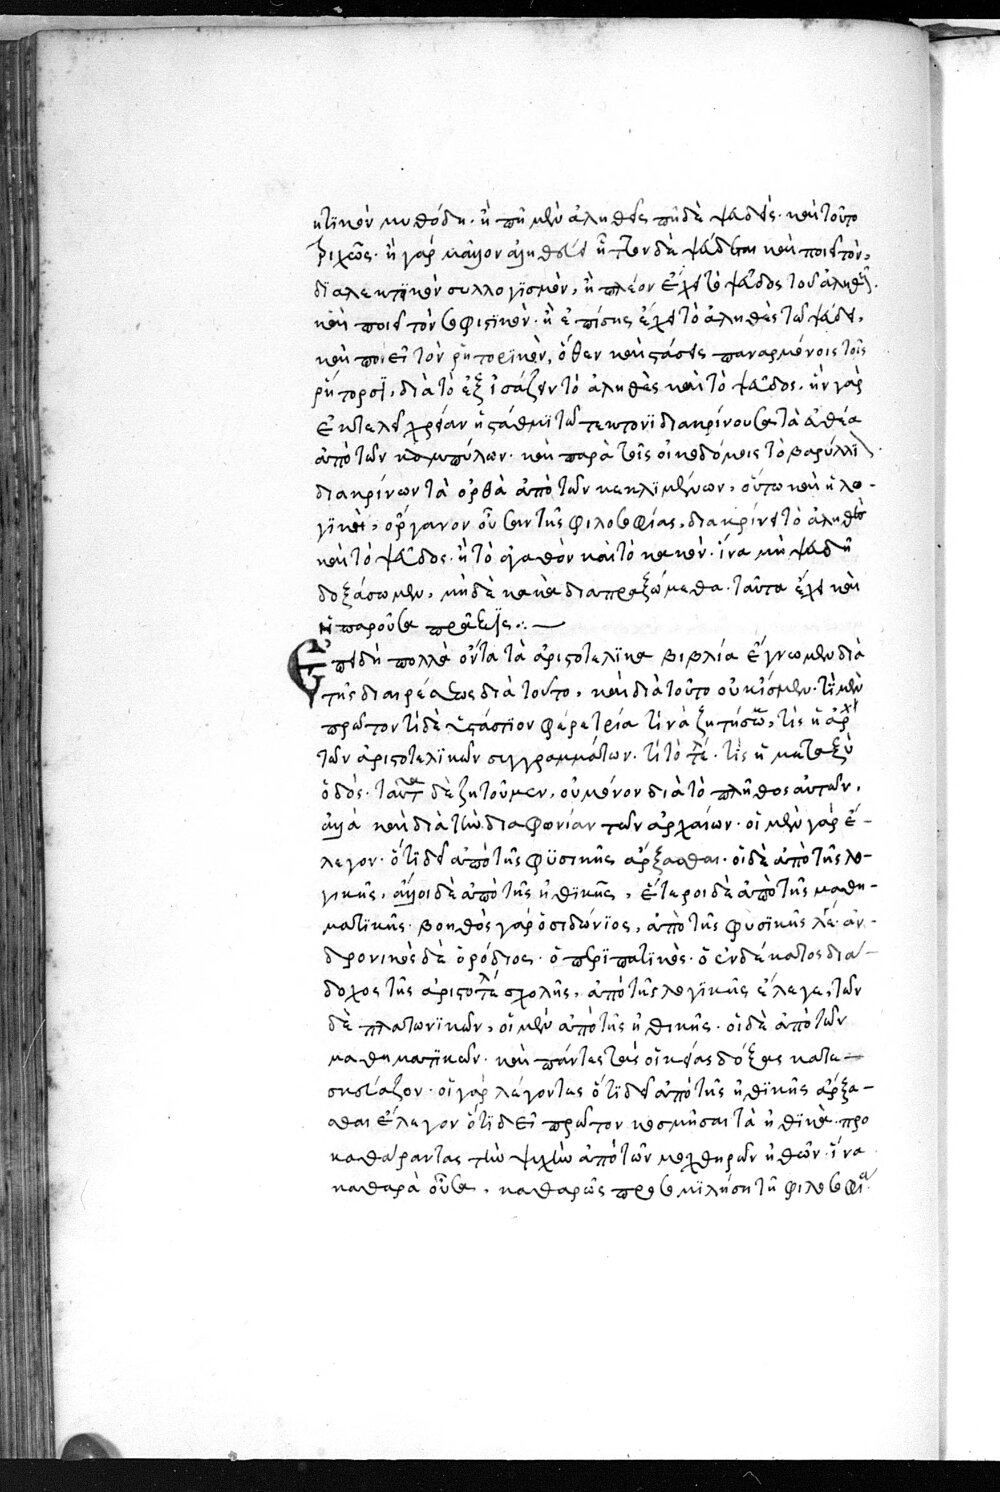 κτικὸν μυθώδη. ἢ πῆ μὲν ἀληθὲς πῆ δὲ ψευδές. καὶ τοῦτο
τριχῶς. ἢ γὰρ μᾶλλον ἀληθεύει ἧττον δὲ ψεύδεται καὶ ποιεῖ τὸν,
διαλεκτικὸν συλλογισμὸν, ἢ πλέον ἔχει τὸ ψεῦδος τοῦ ἀληθοῦς.
καὶ ποιεῖ τὸν σοφιστικὸν. ἢ ἐπίσης ἔχει τὸ ἀληθὲς τῶ ψεύδει,
καὶ ποιεῖ τὸν ῥητορικὸν, ὅθεν καὶ στάσεις παρ
ῥήτορσϊ, διὰ τὸ ἐξισάζειν τὸ ἀληθὲς καὶ τὸ ψεῦδος. ἣν γὰρ
ἐκτελεῖ χρείαν ἡ στάθμη τῶ τέκτονϊ διακρίνουσα τὰ εὐθέα
ἀπὸ τῶν καμπύλων. καὶ παρὰ τοῖς οἰκοδόμοις τὸ βαρύλλϊον
διακρίνων τὰ ὀρθὰ ἀπὸ τῶν κεκλϊμένων, οὕτω καὶ ἡ λο-
γϊκὴ, ὄργανον οὖσα τῆς φιλοσοφίας, διακρίνει τὸ ἀληθὲς
καὶ τὸ ψεῦδος. ἢ τὸ ἀγαθὸν καὶ τὸ κακόν. ἵνα μὴ ψευδῆ
δοξάσωμεν, μηδὲ κακὰ διαπραξώμεθα. ταῦτα ἔχει καὶ
ἡ παροῦσα πρᾶξϊς:. —
Ἐπειδὴ πολλὰ ὄντα τὰ ἀριστοτελϊκὰ βιβλία ἔγνωμεν διὰ
τῆς διαιρέσεως διὰ τοῦτο, καὶ διὰ τοῦτο οὐκ ἴσμεν. τὶ μὲν
πρῶτον τὶ δὲ
τῶν ἀριστοτελϊκῶν συγγραμμάτων. τί τὸ τέλος. τὶς ἡ μεταξὺ
ὁδὸς. ταῦτα δὲ ζητοῦμεν, οὐ μόνον διὰ τὸ πλῆθος αὐτῶν,
ἀλλὰ καὶ διὰ τὴν διαφωνίαν τῶν ἀρχαίων. οἱ μὲν γὰρ ἔ-
λεγον. ὅτϊ δεῖ ἀπὸ τῆς φϋσικῆς ἄρξασθαι. οἱ δὲ ἀπὸ τῆς λο-
γικῆς, ἄλλοι δὲ ἀπὸ τῆς ἠθϊκῆς, ἕτεροι δὲ ἀπὸ τῆς μαθη-
ματϊκῆς. βοηθὸς γὰρ ὁ σιδώνϊος, ἀπὸ τῆς φυσϊκῆς λέγει. ἀν-
δρονικὸς δὲ ὁ ῥόδιος. ὁ περϊπατϊκὸς. ὁ ἑνδέκατος διά-
δοχος τῆς ἀριστοτέλους σχολῆς, ἀπὸ τῆς λογϊκῆς ἔλεγε, τῶν
δὲ πλατωνϊκῶν, οἱ μὲν ἀπὸ τῆς ἠθικῆς. οἱ δὲ ἀπὸ τῶν
μαθηματϊκῶν. καὶ πάντες τὰς οἰκείας δόξας κατε-
σκεύαζον. οἱ γὰρ λέγοντες ὅτϊ δεῖ ἀπὸ τῆς ἠθϊκῆς ἄρξα-
σθαι ἔλεγον ὅτϊ δεῖ πρῶτον κοσμῆσαι τὰ ἠθϊκὰ. προ
καθάραντας τὴν ψυχὴν ἀπὸ τῶν μοχθηρῶν ἠθῶν. ἵνα
καθαρὰ οὖσα, καθαρῶς προσομϊλήση τῆ φιλοσοφία.